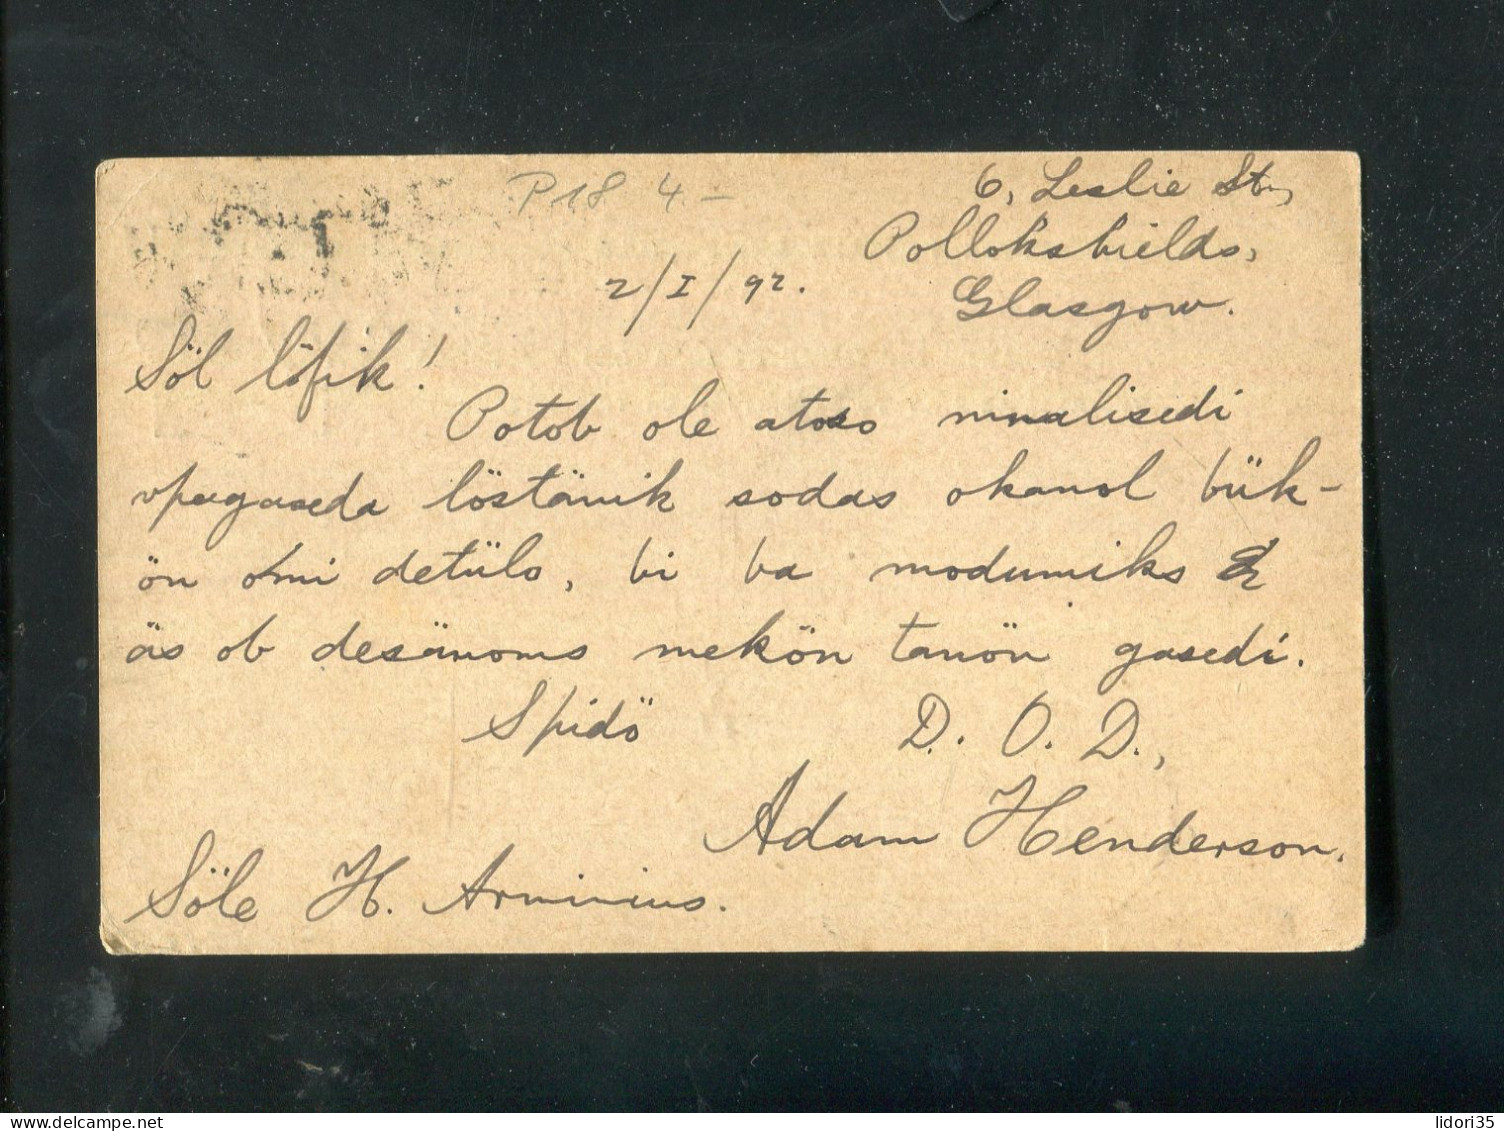 P 18 4 –
6, Leslie St.,
Pollokshields,
Glasgow.
2/I/92.
Söl löfik!
Potob ole atoso ninalisedi
vpagaseda löstänik sodas okanol bük-
ön omi detülo, bi ba modumiks
äs ob desänoms mekön tanön gasedi.
Spidö D. O. D.,
Adam Henderson.
Söle H. Arminius.
lidori35